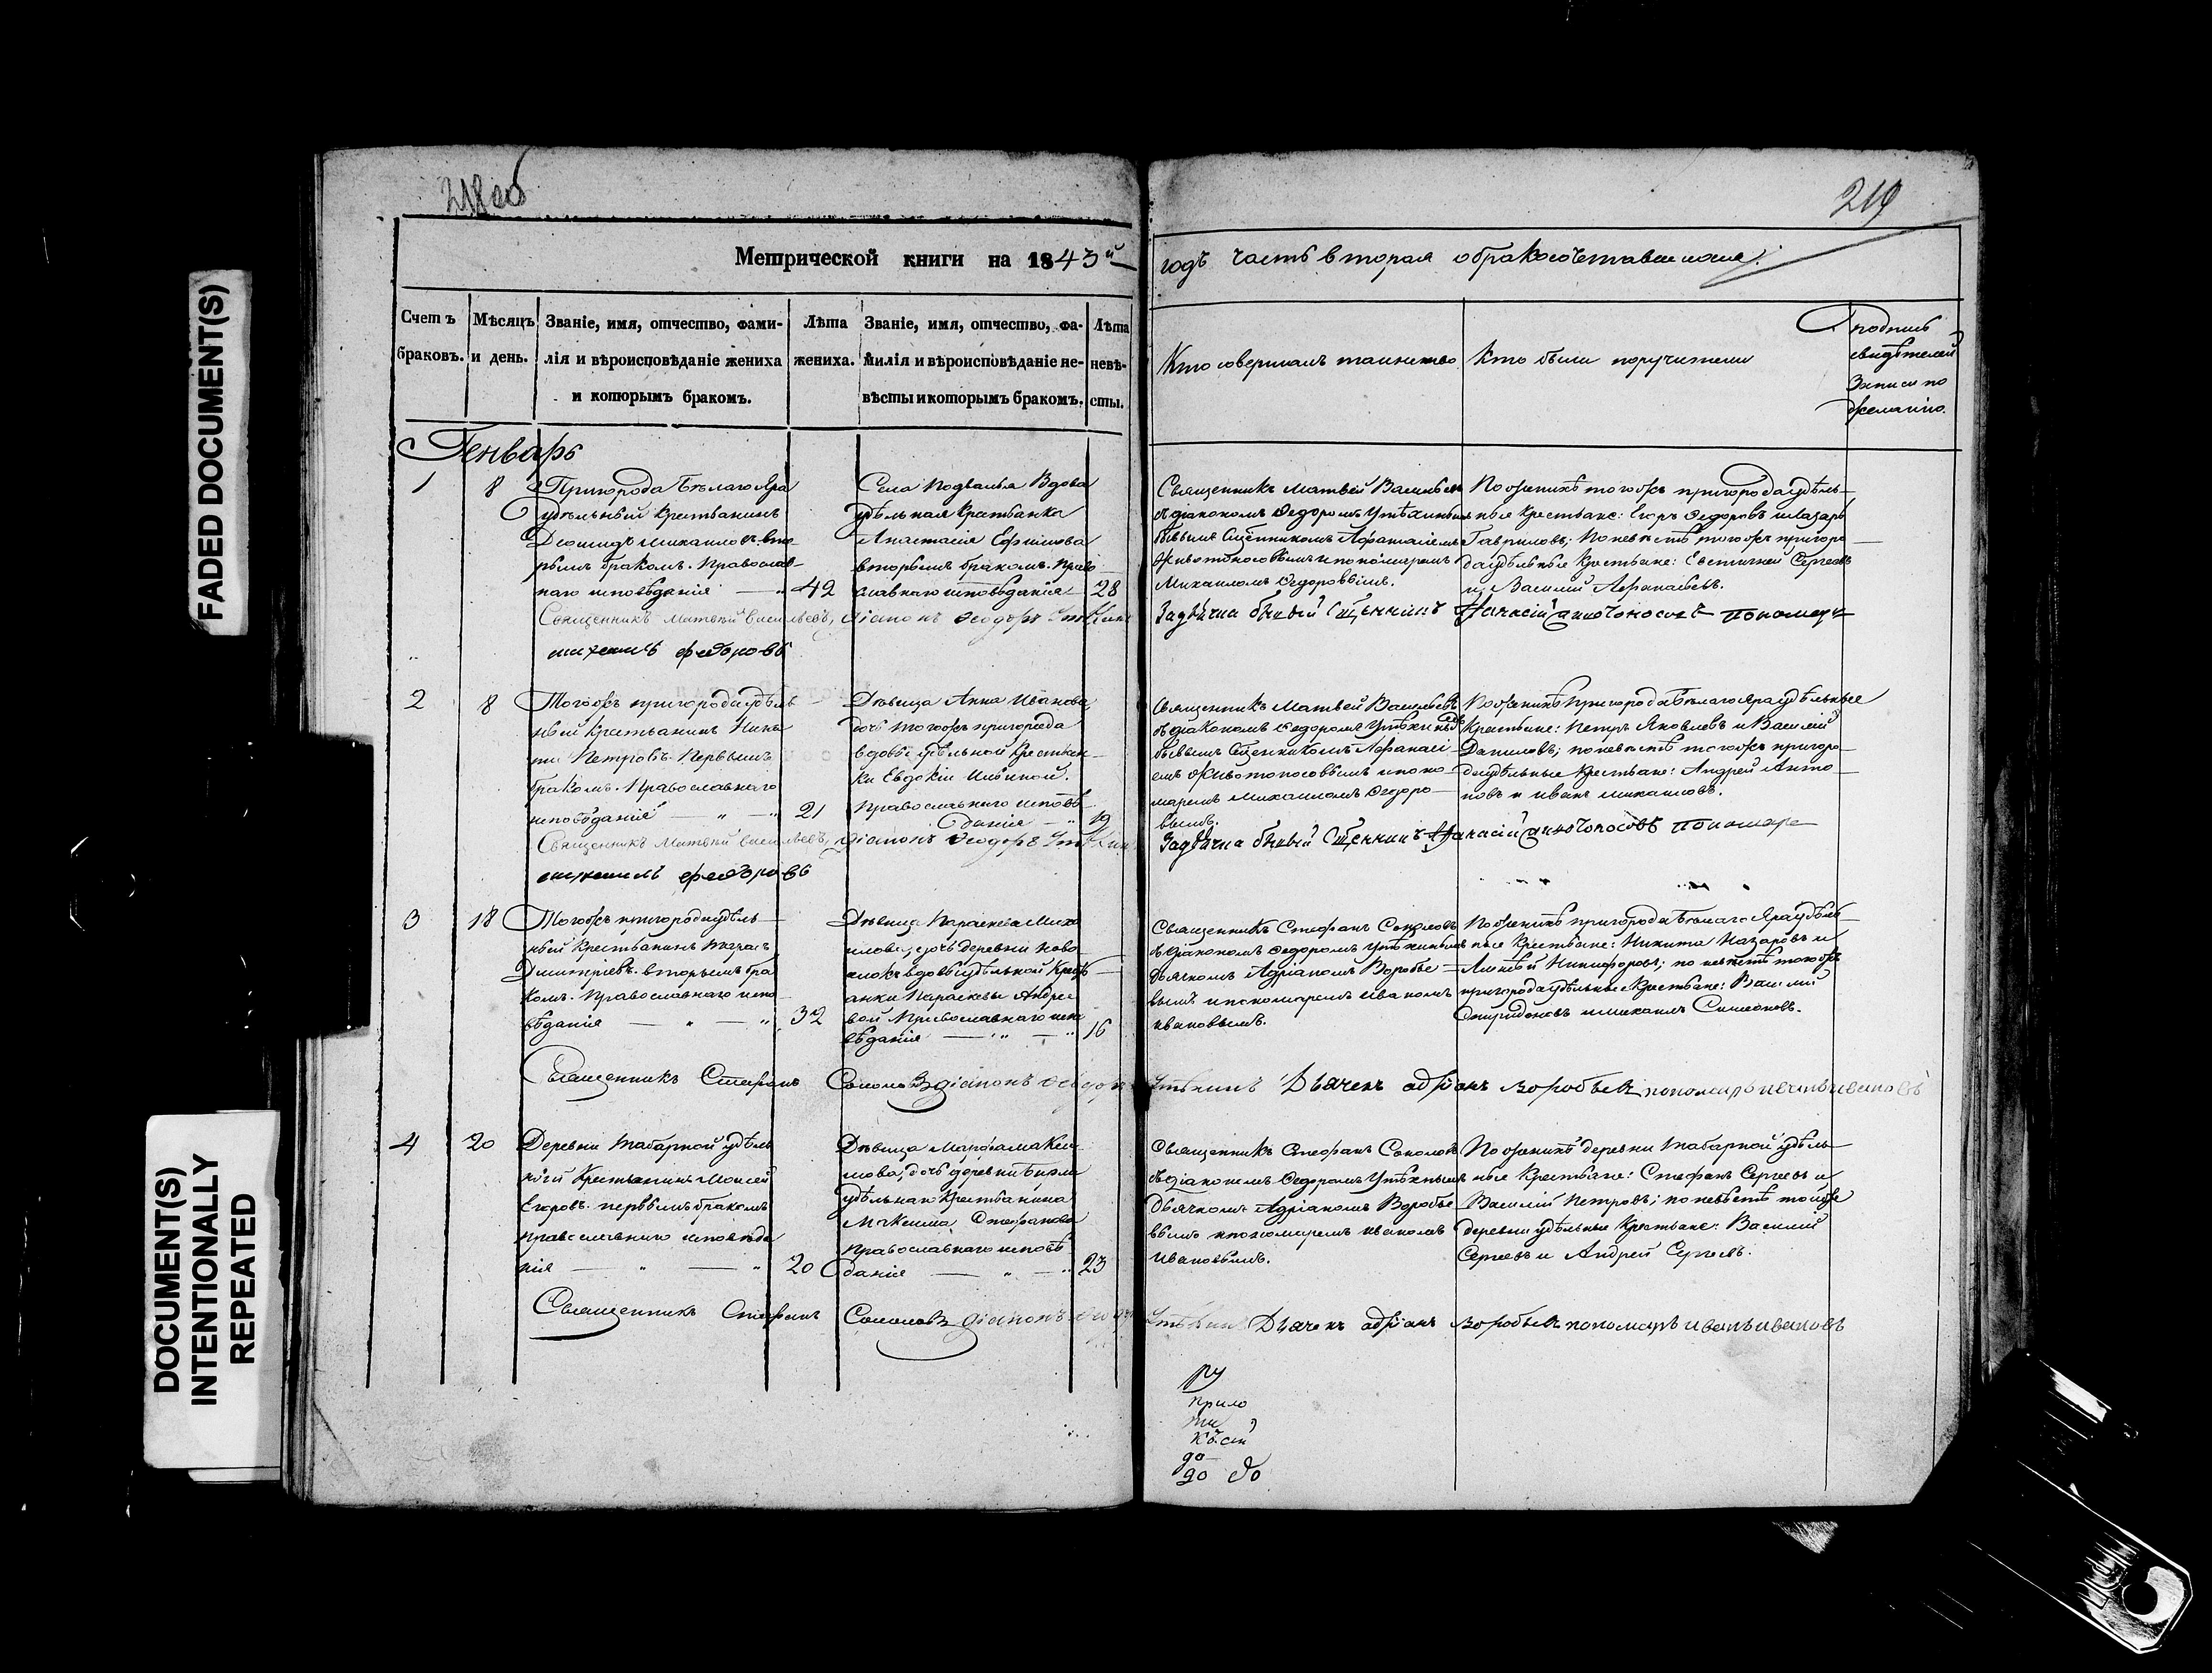 218об
219
Метрической книги на 1843й
годъ часть вторая о бракосочетавшихся.
Счетъ браковъ.
Мѣсяцъ и день.
Званіе, имя, отчество, фами-
лія и вѣроисповѣданіе жениха
и которымъ бракомъ.
Лѣта
жениха.
Званіе, имя, отчество, фа-
милія и вѣроисповѣданіе не-
вѣсты и которымъ бракомъ.
Лѣта
невѣ-
сты.
Кто совершалъ таинство
Кто были поручители
Подпись
свидѣтелей
записи по
желанію.
Генварь
1
8
Пригорода Бѣлаго Яра
удѣльный Крестьянинъ
Диомидъ Михайловъ вто-
рымъ бракомъ. Православ-
наго исповѣданія
42
Села Подвалья Вдова
удѣльная Крестьянка
Анастасія Ефимова
вторымъ бракомъ. Право-
славнаго исповѣданія
28
Священникъ Матвей Васильевъ
съ діакономъ Федоромъ Утѣхинымъ
бывымъ Сщенникомъ Афанасіемъ
Животоносовымъ и пономаремъ
Михаиломъ Федоровымъ.
По женихѣ тогожъ пригорода удѣль-
ные Крестьяне: Егоръ Федоровъ и Лазарь
Гавриловъ; По невѣстѣ тогожъ пригоро-
да удѣльные Крестьяне: Евстигней Сергеевъ
и Василий Афанасьевъ.
Священникъ Матвей Васильевъ, діаконъ Феодоръ Утѣхинъ
За дьячка бывый Сщенникъ Афанасій Животоносовъ пономарь
михаилъ федоровъ
2
8
Тогожъ пригорода удѣль-
ный Крестьянинъ Ники-
та Петровъ. Первымъ
бракомъ. Православнаго
исповѣданія
21
Дѣвица Анна Иванова
дочь тогожъ пригорода
вдовы удѣльной Крестьян-
ки Евдокіи Ильиной.
Православнаго исповѣ-
данія
19
Священникъ Матвей Васильевъ
съ діакономъ Федоромъ Утѣхинымъ
бывымъ Сщенникомъ Афанасі-
емъ Животоносовымъ и поно-
маремъ Михаиломъ Федоро-
вымъ.
По женихѣ Пригорода Бѣлаго Яра удѣльные
Крестьяне: Петръ Яковлевъ и Василій
Даниловъ; по невѣстѣ тогожъ пригоро-
да удѣльные Крестьяне: Андрей Анто-
новъ и Иванъ Михаиловъ.
Священникъ Матвей Васильевъ, діаконъ Феодоръ Утѣхинъ
За дьячка бывый Сщенникъ Афанасій Животоносовъ пономарь
михаилъ федоровъ
3
18
Тогожъ пригорода удѣль-
ный Крестьянинъ
Дмитріевъ. вторымъ бра-
комъ. Православнаго испо-
вѣданія
32
Дѣвица Параскева Миха-
илова, дочь деревни
вдовы удѣльной Кресть-
янки Параскевы Андрее-
вой Православнаго испо-
вѣданія
16
Священникъ Стефанъ Соколовъ
съ діакономъ Федоромъ Утѣхинымъ
дьячкомъ Адріаномъ Воробье-
вымъ и пономаремъ Иваномъ
Ивановымъ.
По женихѣ пригорода Бѣлаго Яра удѣль-
ные Крестьяне: Никита Назаровъ и
Никифоровъ; по невѣстѣ тогожъ
пригорода удѣльные Крестьяне: Василій
Спиридоновъ и Михаилъ Симеоновъ.
Священникъ Стефанъ Соколовъ діаконъ Феодоръ Утѣхинъ Дьячекъ адріанъ воробьевъ пономарь иванъ ивановъ
4
20
Деревни Табарной удѣль-
ной Крестьянинъ Моисей
Егоровъ. первымъ бракомъ
православнаго исповѣда-
нія
20
Дѣвица Марфа Макси-
мова, дочь деревни
удѣльнаго Крестьянина
Максима Стефанова
Православнаго исповѣ-
данія
23
Священникъ Стефанъ Соколовъ
съ діакономъ Федоромъ Утѣхинымъ
дьячкомъ Адріаномъ Воробье-
вымъ и пономаремъ Иваномъ
Ивановымъ.
По женихѣ деревни Табарной удѣль-
ные Крестьяне: Стефанъ Сергеевъ и
Василій Петровъ; по невѣстѣ тойже
деревни удѣльные Крестьяне: Василий
Сергеевъ и Андрей Сергеевъ.
Священникъ Стефанъ Соколовъ діаконъ Феодоръ Утѣхинъ Дьячекъ адріанъ воробьевъ пономарь иванъ ивановъ
ру
прило
до
до до
FADED DOCUMENT(S)
DOCUMENT(S)
INTENTIONALLY
REPEATED